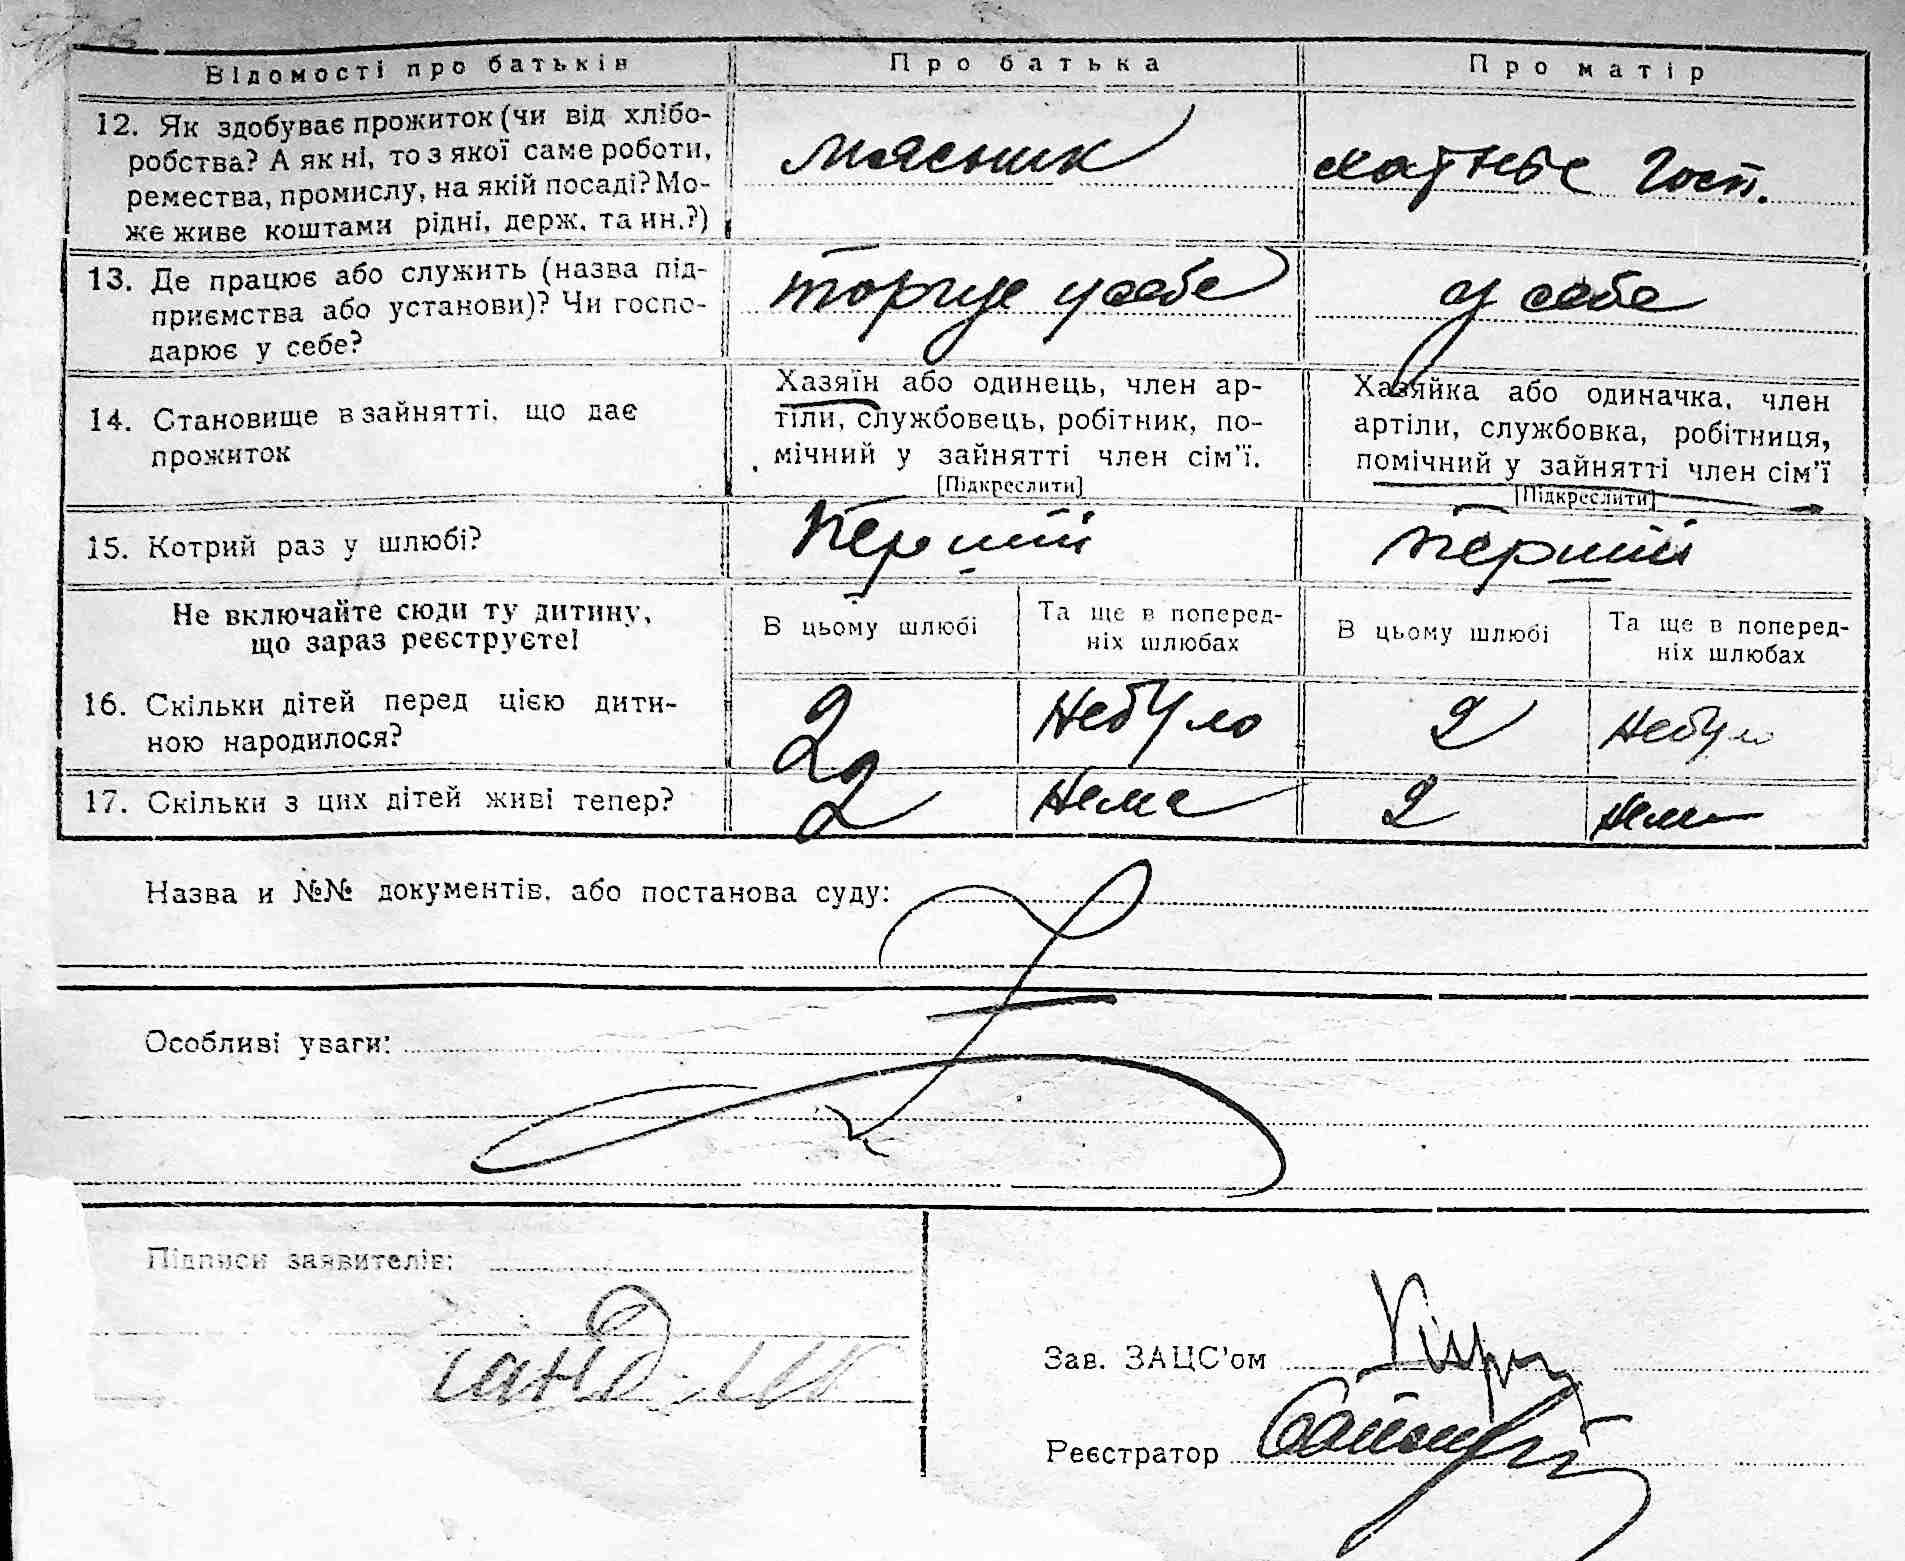 Відомості про батьків
Про батька
Про матір
12. Як здобуває прожиток (чи від хлібо-
робства? А як ні, то з якої саме роботи,
ремества, промислу, на якій посаді? Мо-
же живе коштами рідні, держ. та ин.?)
мясник
хатнье Госп.
13. Де працює або служить (назва під-
приємства або установи)? Чи госпо-
дарює у себе?
торгує у себе
у себе
14. Становище в зайнятті, що дає
прожиток
Хазяїн або одинець, член ар-
тіли, службовець, робітник, по-
мічний у зайнятті член сім'ї.
[Підкреслити]
Хазяйка або одиначка, член
артіли, службовка, робітниця,
помічний у зайнятті член сім'ї
[Підкреслити]
15. Котрий раз у шлюбі?
Перший
перший
Не включайте сюди ту дитину,
що зараз реєструєте!
В цьому шлюбі
Та ще в поперед-
ніх шлюбах
В цьому шлюбі
Та ще в поперед-
ніх шлюбах
16. Скільки дітей перед цією дити-
ною народилося?
2
небуло
2
небуло
17. Скільки з цих дітей живі тепер?
2
нема
2
нема
Назва и №№ документів, або постанова суду:
Особливі уваги:
Підписи заявителів:
Зав. ЗАЦС'ом
Реєстратор